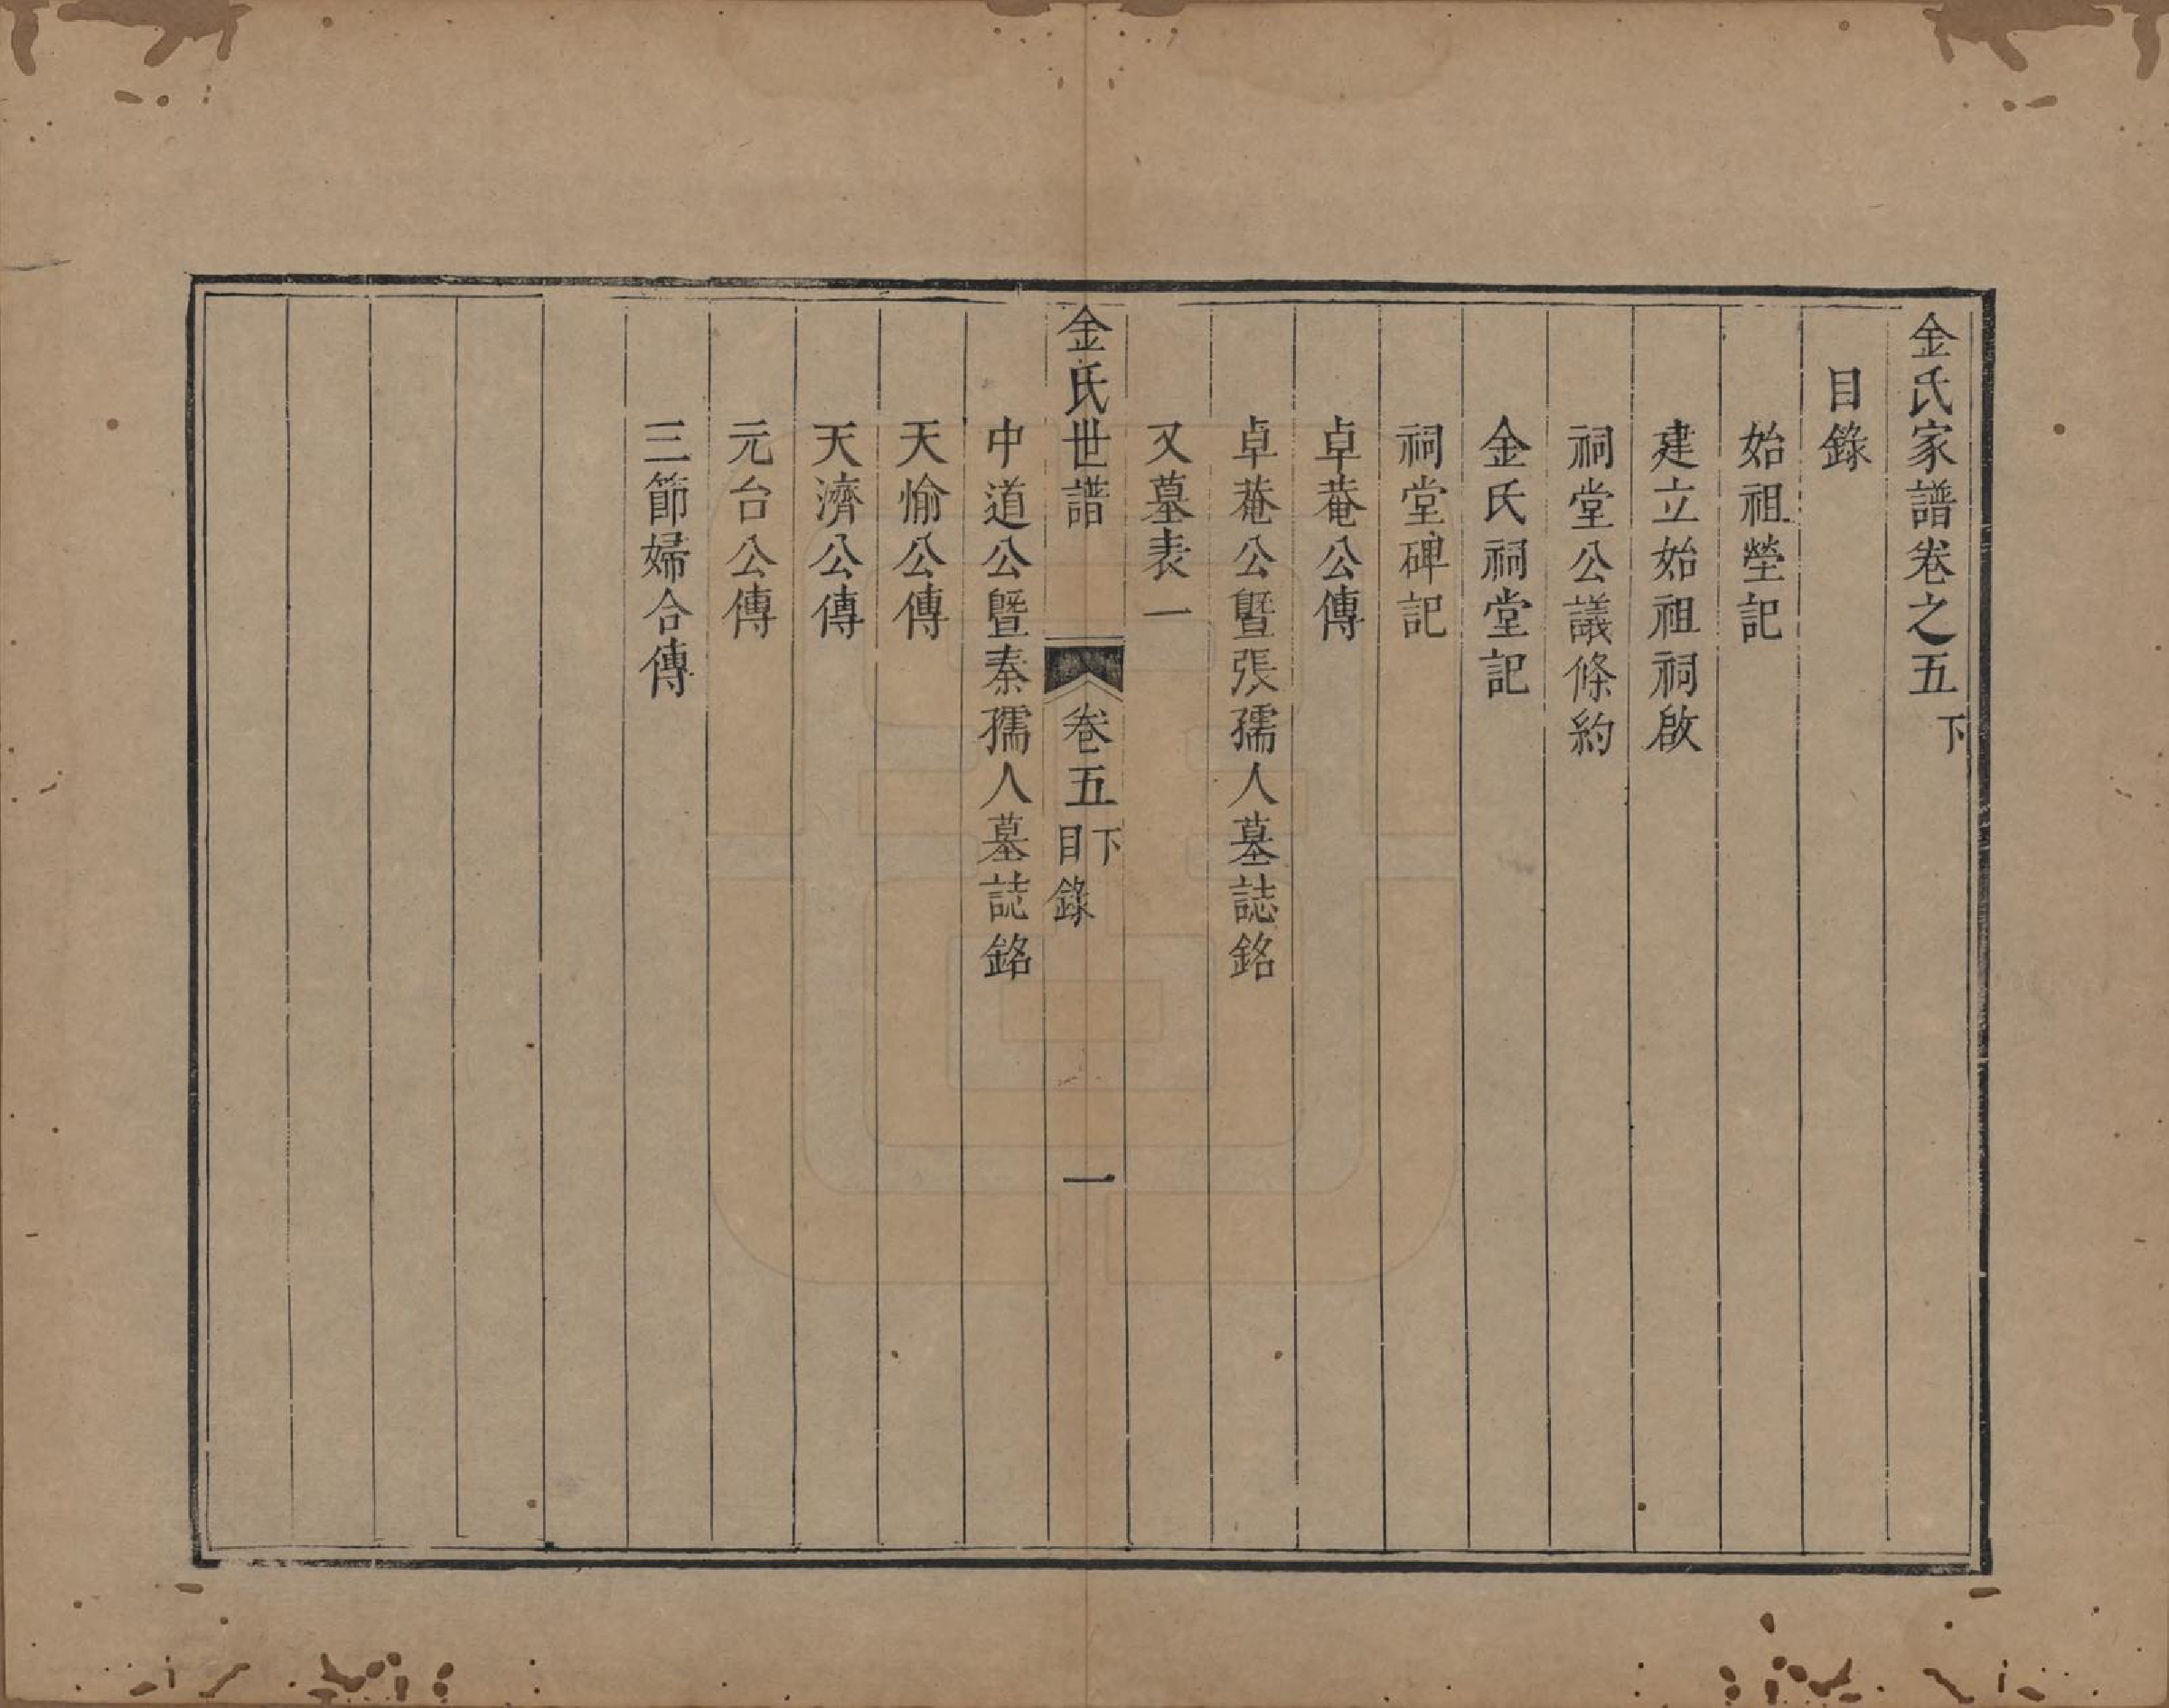 金氏家譜卷之五下
目錄
始祖塋記
建立始祖祠啟
祠堂公議條約
金氏祠堂記
祠堂碑記
卓菴公傳
卓菴公暨張孺人墓誌銘
又墓表一
金氏世譜 卷五下目錄 一
中道公暨秦孺人墓誌銘
天愉公傳
天濟公傳
元台公傳
三節婦合傳